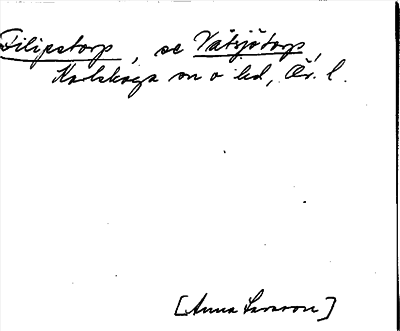 Filipstorp, se Våtsjötorp,
Karlskoga sn o hd, Ör. l.
[Anna Larsson]